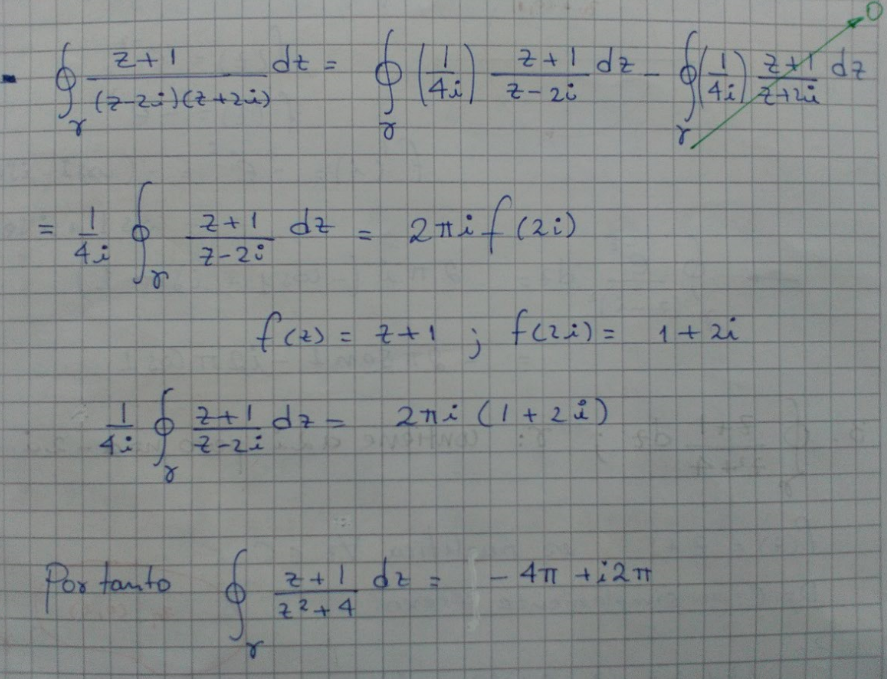 - ∮_γ (z+1)/((z-2i)(z+2i)) dz = ∮_γ (1/4i) (z+1)/(z-2i) dz - ∮_γ (1/4i) (z+1)/(z+2i) dz → 0
= 1/4i ∮_γ (z+1)/(z-2i) dz = 2πi f(2i)
f(z) = z+1 ; f(2i) = 1+2i
1/4i ∮_γ (z+1)/(z-2i) dz = 2πi (1+2i)
Por tanto ∮_γ (z+1)/(z²+4) dz = -4π + i2π